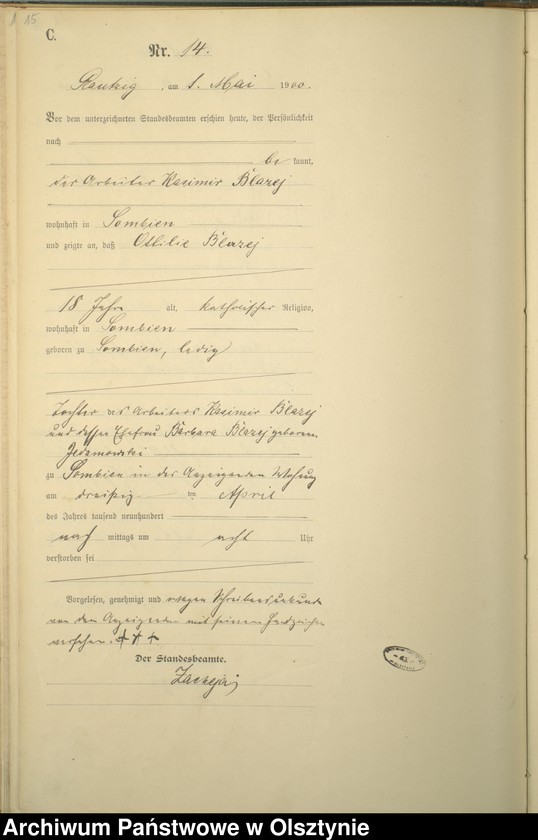 15
C.
Nr. 14.
am 1. Mai 1900.
Vor dem unterzeichneten Standesbeamten erschien heute, der Persönlichkeit
nach
be kannt,
der Arbeiter Kasimir Blazej
wohnhaft in Sombien
und zeigte an, daß Ottilie Blazej
18 Jahre alt, katholischer Religion,
wohnhaft in Sombien
geboren zu Sombien, ledig
Tochter des Arbeiters Kasimir Blazej
und dessen Ehefrau Barbara Blazej geborenen
zu Sombien in des Anzeigenden Wohnung
am dreißig ten April
des Jahres tausend neunhundert
nach mittags um acht Uhr
verstorben sei
Vorgelesen, genehmigt und wegen Schreibensunkunde
von dem Anzeigenden mit seinem Handzeichen
versehen. + + +
Der Standesbeamte.
Archiwum Państwowe w Olsztynie